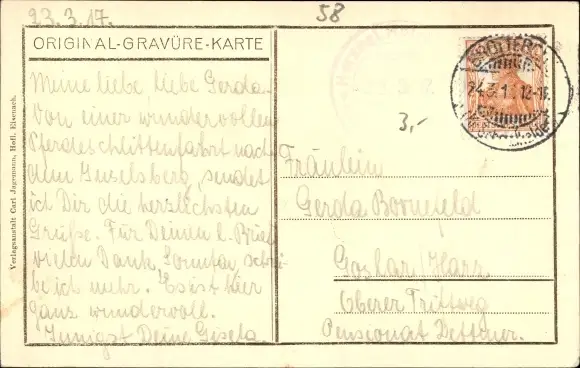 23.3.17.
58
ORIGINAL-GRAVÜRE-KARTE
Meine liebe liebe Gerda.
Von einer wundervollen
Pferdeschlittenfahrt nach
dem Inselsberg, sendet
ich Dir die herzlichsten
Grüße. Für Deinen l. Brief
vielen Dank, Sonntag schrei
be ich mehr. Es ist hier
ganz wundervoll.
Innigst Deine Gisela.
3,-
24.3.1 12-
Fräulein
Gerda Bornefeld
Goslar/Harz.
Oberer Trittweg
Pensionat Dettmer.
Verlagsanstalt Carl Jagemann, Hofl. Eisenach.